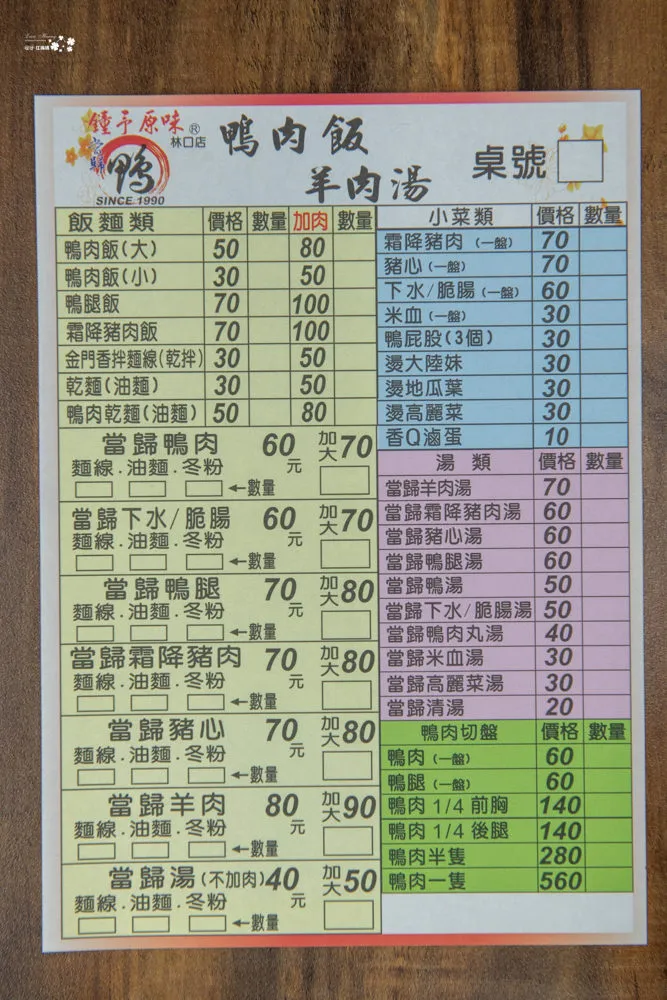 鐘予原味®
林口店
老號
鴨
SINCE 1990
鴨肉飯
羊肉湯
桌號
飯麵類 價格 數量 加肉 數量
鴨肉飯(大) 50 80
鴨肉飯(小) 30 50
鴨腿飯 70 100
霜降豬肉飯 70 100
金門香拌麵線(乾拌) 30 50
乾麵(油麵) 30 50
鴨肉乾麵(油麵) 50 80
當歸鴨肉 60元 加大70
麵線.油麵.冬粉
←數量
當歸下水/脆腸 60元 加大70
麵線.油麵.冬粉
←數量
當歸鴨腿 70元 加大80
麵線.油麵.冬粉
←數量
當歸霜降豬肉 70元 加大80
麵線.油麵.冬粉
←數量
當歸豬心 70元 加大80
麵線.油麵.冬粉
←數量
當歸羊肉 80元 加大90
麵線.油麵.冬粉
←數量
當歸湯(不加肉)40元 加大50
麵線.油麵.冬粉
←數量
小菜類 價格 數量
霜降豬肉(一盤) 70
豬心(一盤) 70
下水/脆腸(一盤) 60
米血(一盤) 30
鴨屁股(3個) 30
燙大陸妹 30
燙地瓜葉 30
燙高麗菜 30
香Q滷蛋 10
湯類 價格 數量
當歸羊肉湯 70
當歸霜降豬肉湯 60
當歸豬心湯 60
當歸鴨腿湯 60
當歸鴨湯 50
當歸下水/脆腸湯 50
當歸鴨肉丸湯 40
當歸米血湯 30
當歸高麗菜湯 30
當歸清湯 20
鴨肉切盤 價格 數量
鴨肉(一盤) 60
鴨腿(一盤) 60
鴨肉 1/4 前胸 140
鴨肉 1/4 後腿 140
鴨肉半隻 280
鴨肉一隻 560